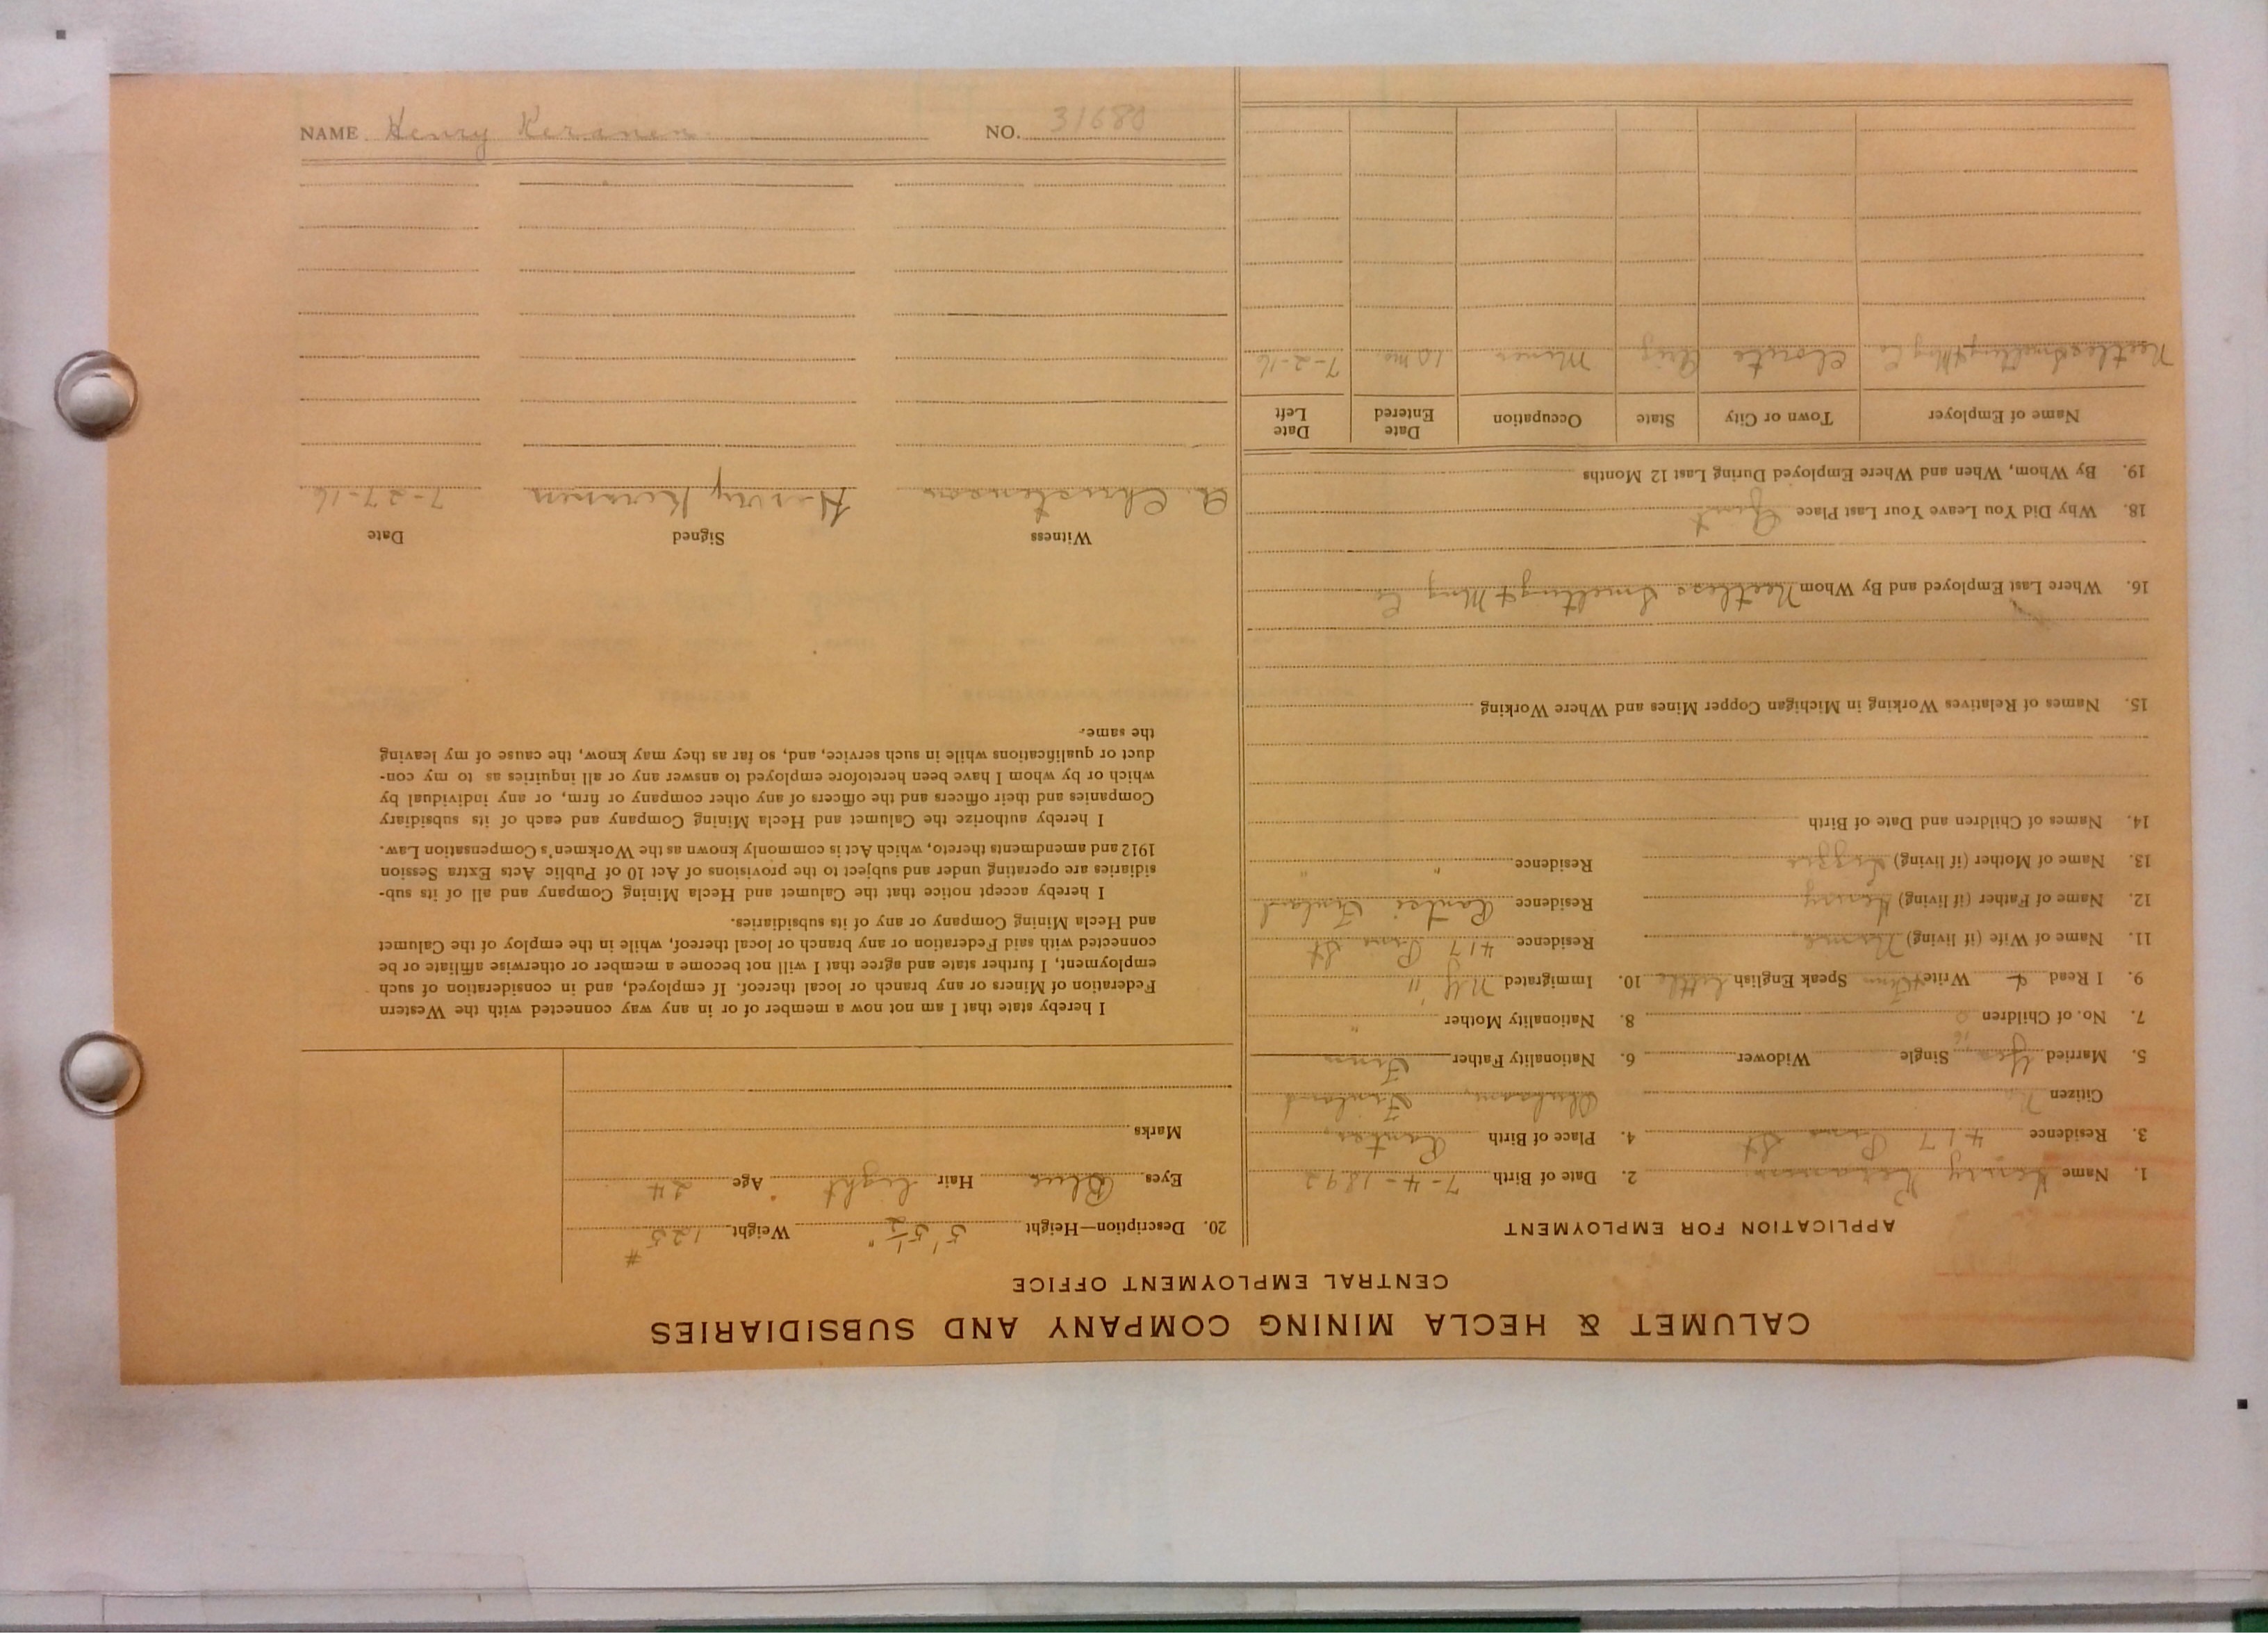 CALUMET & HECLA MINING COMPANY AND SUBSIDIARIES
CENTRAL EMPLOYMENT OFFICE
APPLICATION FOR EMPLOYMENT
1. Name Henry Keranen 2. Date of Birth 7-4-1892
3. Residence 417 Pine St 4. Place of Birth
Citizen No Finland
5. Married Yes Single Widower 6. Nationality Father Finn
7. No. of Children 0 8. Nationality Mother "
9. I Read & Write Finn Speak English little 10. Immigrated N.Y. 11
11. Name of Wife (if living) Residence 417 Pine St
12. Name of Father (if living) Henry Residence Finland
13. Name of Mother (if living) Residence " "
14. Names of Children and Date of Birth
15. Names of Relatives Working in Michigan Copper Mines and Where Working
16. Where Last Employed and By Whom Smelting & Mng Co
18. Why Did You Leave Your Last Place Quit
19. By Whom, When and Where Employed During Last 12 Months
Name of Employer Town or City State Occupation Date Entered Date Left
Smelting & Mng Co Ariz Miner 10 mo 7-2-16
20. Description—Height 5' 5 1/2" Weight 125 #
Eyes Blue Hair light Age 24
Marks
I hereby state that I am not now a member of or in any way connected with the Western
Federation of Miners or any branch or local thereof. If employed, and in consideration of such
employment, I further state and agree that I will not become a member or otherwise affiliate or be
connected with said Federation or any branch or local thereof, while in the employ of the Calumet
and Hecla Mining Company or any of its subsidiaries.
I hereby accept notice that the Calumet and Hecla Mining Company and all of its sub-
sidiaries are operating under and subject to the provisions of Act 10 of Public Acts Extra Session
1912 and amendments thereto, which Act is commonly known as the Workmen's Compensation Law.
I hereby authorize the Calumet and Hecla Mining Company and each of its subsidiary
Companies and their officers and the officers of any other company or firm, or any individual by
which or by whom I have been heretofore employed to answer any or all inquiries as to my con-
duct or qualifications while in such service, and, so far as they may know, the cause of my leaving
the same.
Witness Signed Date
A. Christenson Henry Keranen 7-27-16
NAME Henry Keranen NO. 31680